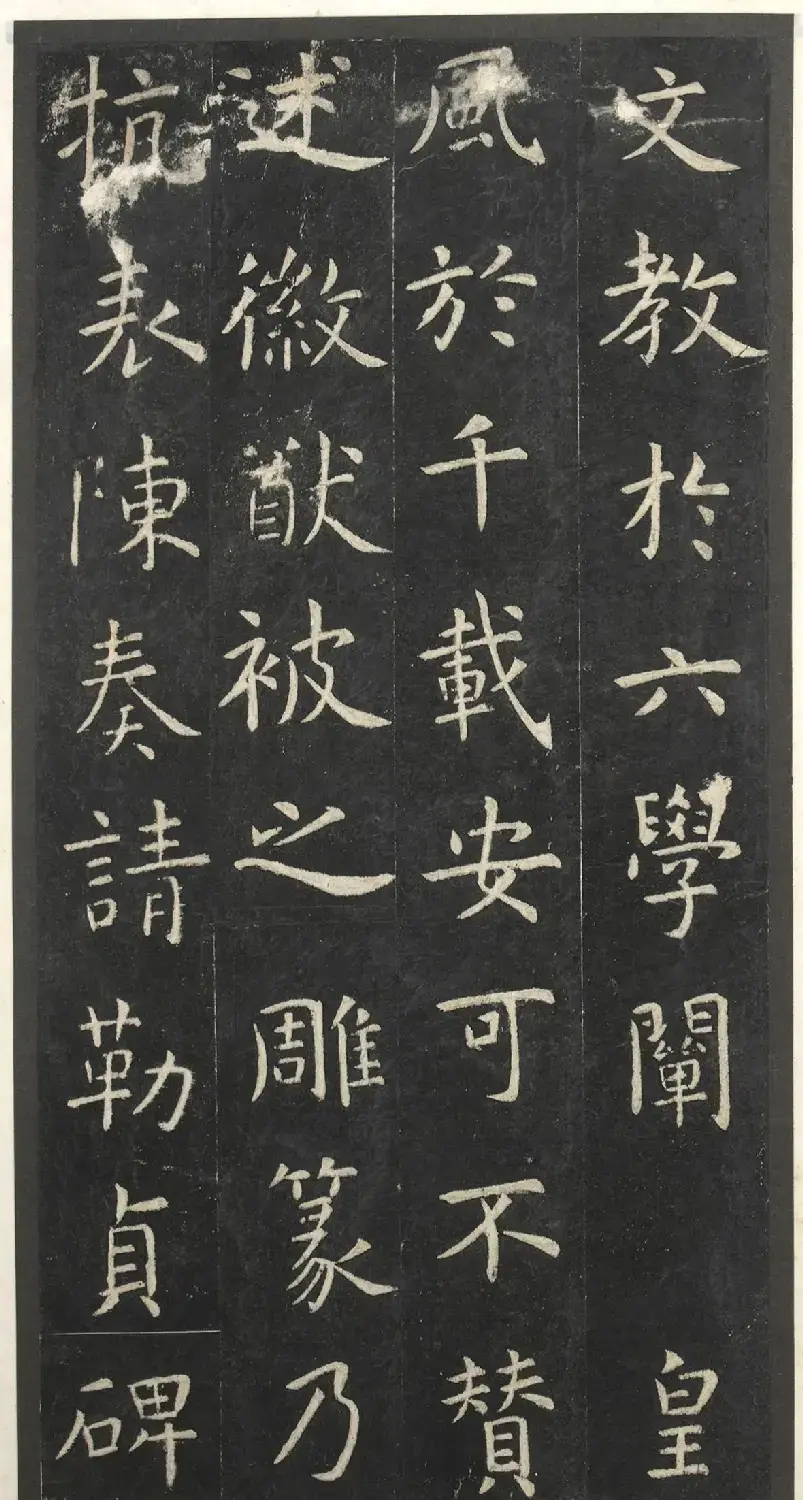 文教於六學闡皇
風於千載安可不賛
述徽猷被之雕篆乃
抗表陳奏請勒貞碑